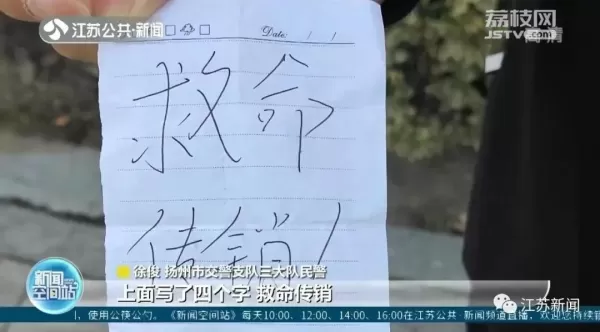 江苏公共·新闻
荔枝网
JSTV.com
高清
Date: / /
救命
传销!
徐俊 扬州市交警支队三大队民警
上面写了四个字 救命传销
新闻
空间站
，使用公筷公勺。《新闻空间站》每天10:00、12:00、14:00、16:00在江苏公共·新闻频道直播，欢迎您持续
江苏新闻